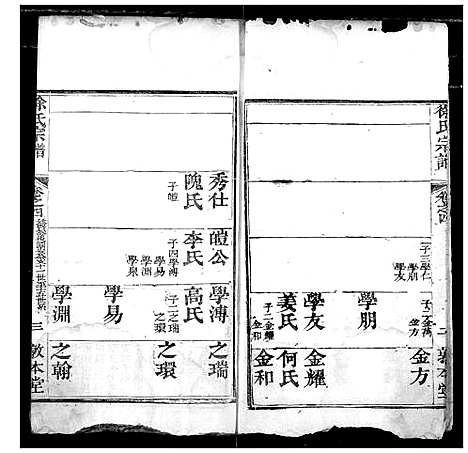 徐氏宗譜
卷之四
二
敦本堂
子三學仁
學朋
學友
學朋
子二金萬
金方
金方
學友
姜氏
子二金耀
金和
金耀
何氏
金和
秀仕
隗氏
子皚
皚公
李氏
子四學溥
學易
學淵
學泉
學溥
高氏
子二之瑞
之環
之瑞
之環
學易
學淵
之翰
徐氏宗譜
卷之四
三
敦本堂